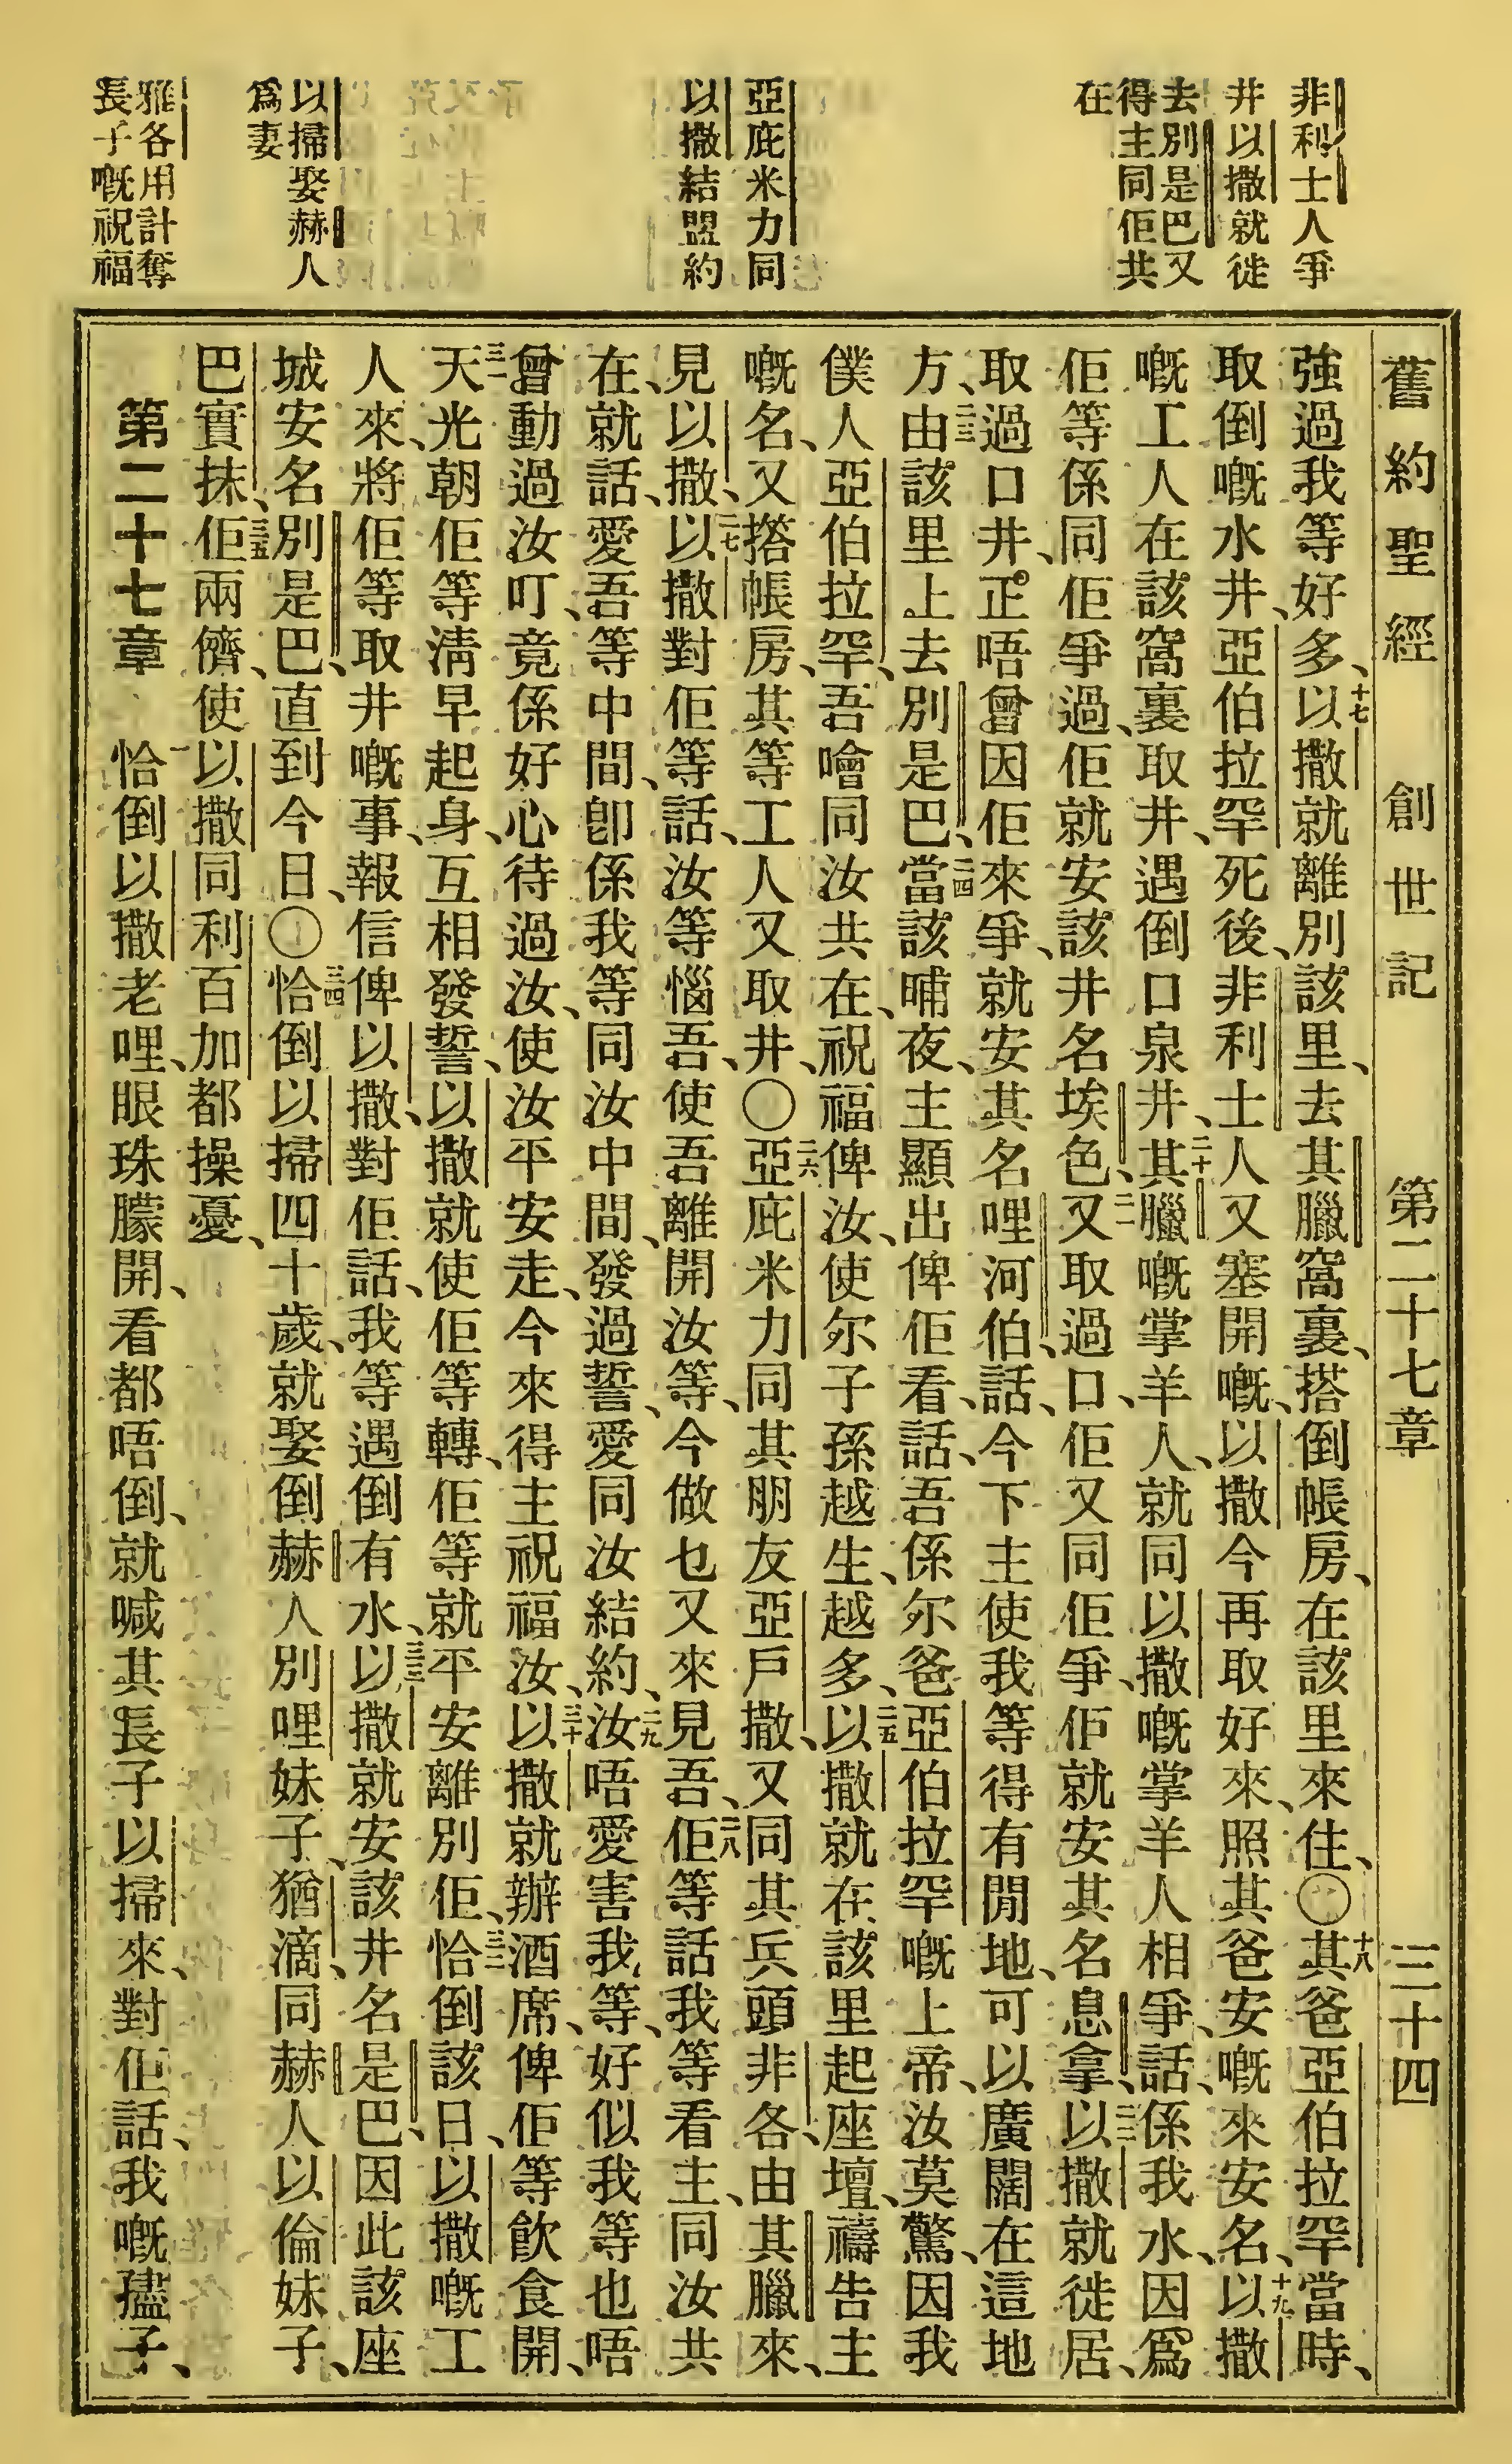 非利士人爭
井以撒就徙
去別是巴又
得主同佢共
在
亞庇米力同
以撒結盟約
以掃娶赫人
爲妻
雅各用計奪
長子嘅祝福
舊約聖經 創世記 第二十七章 三十四
強過我等好多、十七以撒就離別該里、去其臘窩裏、搭倒帳房、在該里來住、〇十八其爸亞伯拉罕當時、
取倒嘅水井、亞伯拉罕死後、非利士人又塞開嘅、以撒今再取好來、照其爸安嘅來安名、十九以撒
嘅工人在該窩裏取井、遇倒口泉井、二十其臘嘅掌羊人、就同以撒嘅掌羊人相爭、話、係我水、因爲
佢等係同佢爭過、佢就安該井名埃色、二一又取過口、佢又同佢爭、佢就安其名息拿、二二以撒就徙居、
取過口井、正唔曾因佢來爭、就安其名哩河伯、話、今下主使我等得有閒地、可以廣闊在這地
方、二三由該里上去別是巴、二四當該晡夜、主顯出俾佢看、話、吾係尔爸亞伯拉罕嘅上帝、汝莫驚、因我
僕人亞伯拉罕、吾噲同汝共在、祝福俾汝、使尔子孫越生、越多、二五以撒就在該里起座壇、禱告主
嘅名、又撘帳房、其等工人又取井、〇二六亞庇米力同其朋友亞戶撒、又同其兵頭非各、由其臘來、
見以撒、二七以撒對佢等話、汝等惱吾、使吾離開汝等、今做乜又來見吾、二八佢等話我等看主、同汝共
在、就話、愛吾等中間、卽係我等同汝中間、發過誓、愛同汝結約、二九汝唔愛害我等、好似我等也唔
曾動過汝叮、竟係好心待過汝、使汝平安走、今來得主祝福汝、三十以撒就辦酒席、俾佢等飲食開、
三一天光朝佢等淸早起身、互相發誓、以撒就使佢等轉、佢等就平安離別佢、三二恰倒該日、以撒嘅工
人來、將佢等取井嘅事、報信俾以撒、對佢話、我等遇倒有水、三三以撒就安該井名是巴、因此該座
城安名別是巴、直到今日、〇三四恰倒以掃四十歲、就娶倒赫人別哩妹子、猶滴、同赫人以倫妹子、
巴實抹、三五佢兩儕、使以撒同利百加都操憂、
第二十七章 一恰倒以撒老哩、眼珠朦開、看都唔倒、就喊其長子以掃來、對佢話、我嘅孻子、